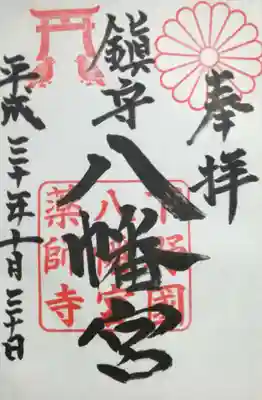 奉拝
鎮守
八幡宮
下野国
八幡宮
薬師寺
平成三十年十月三十日